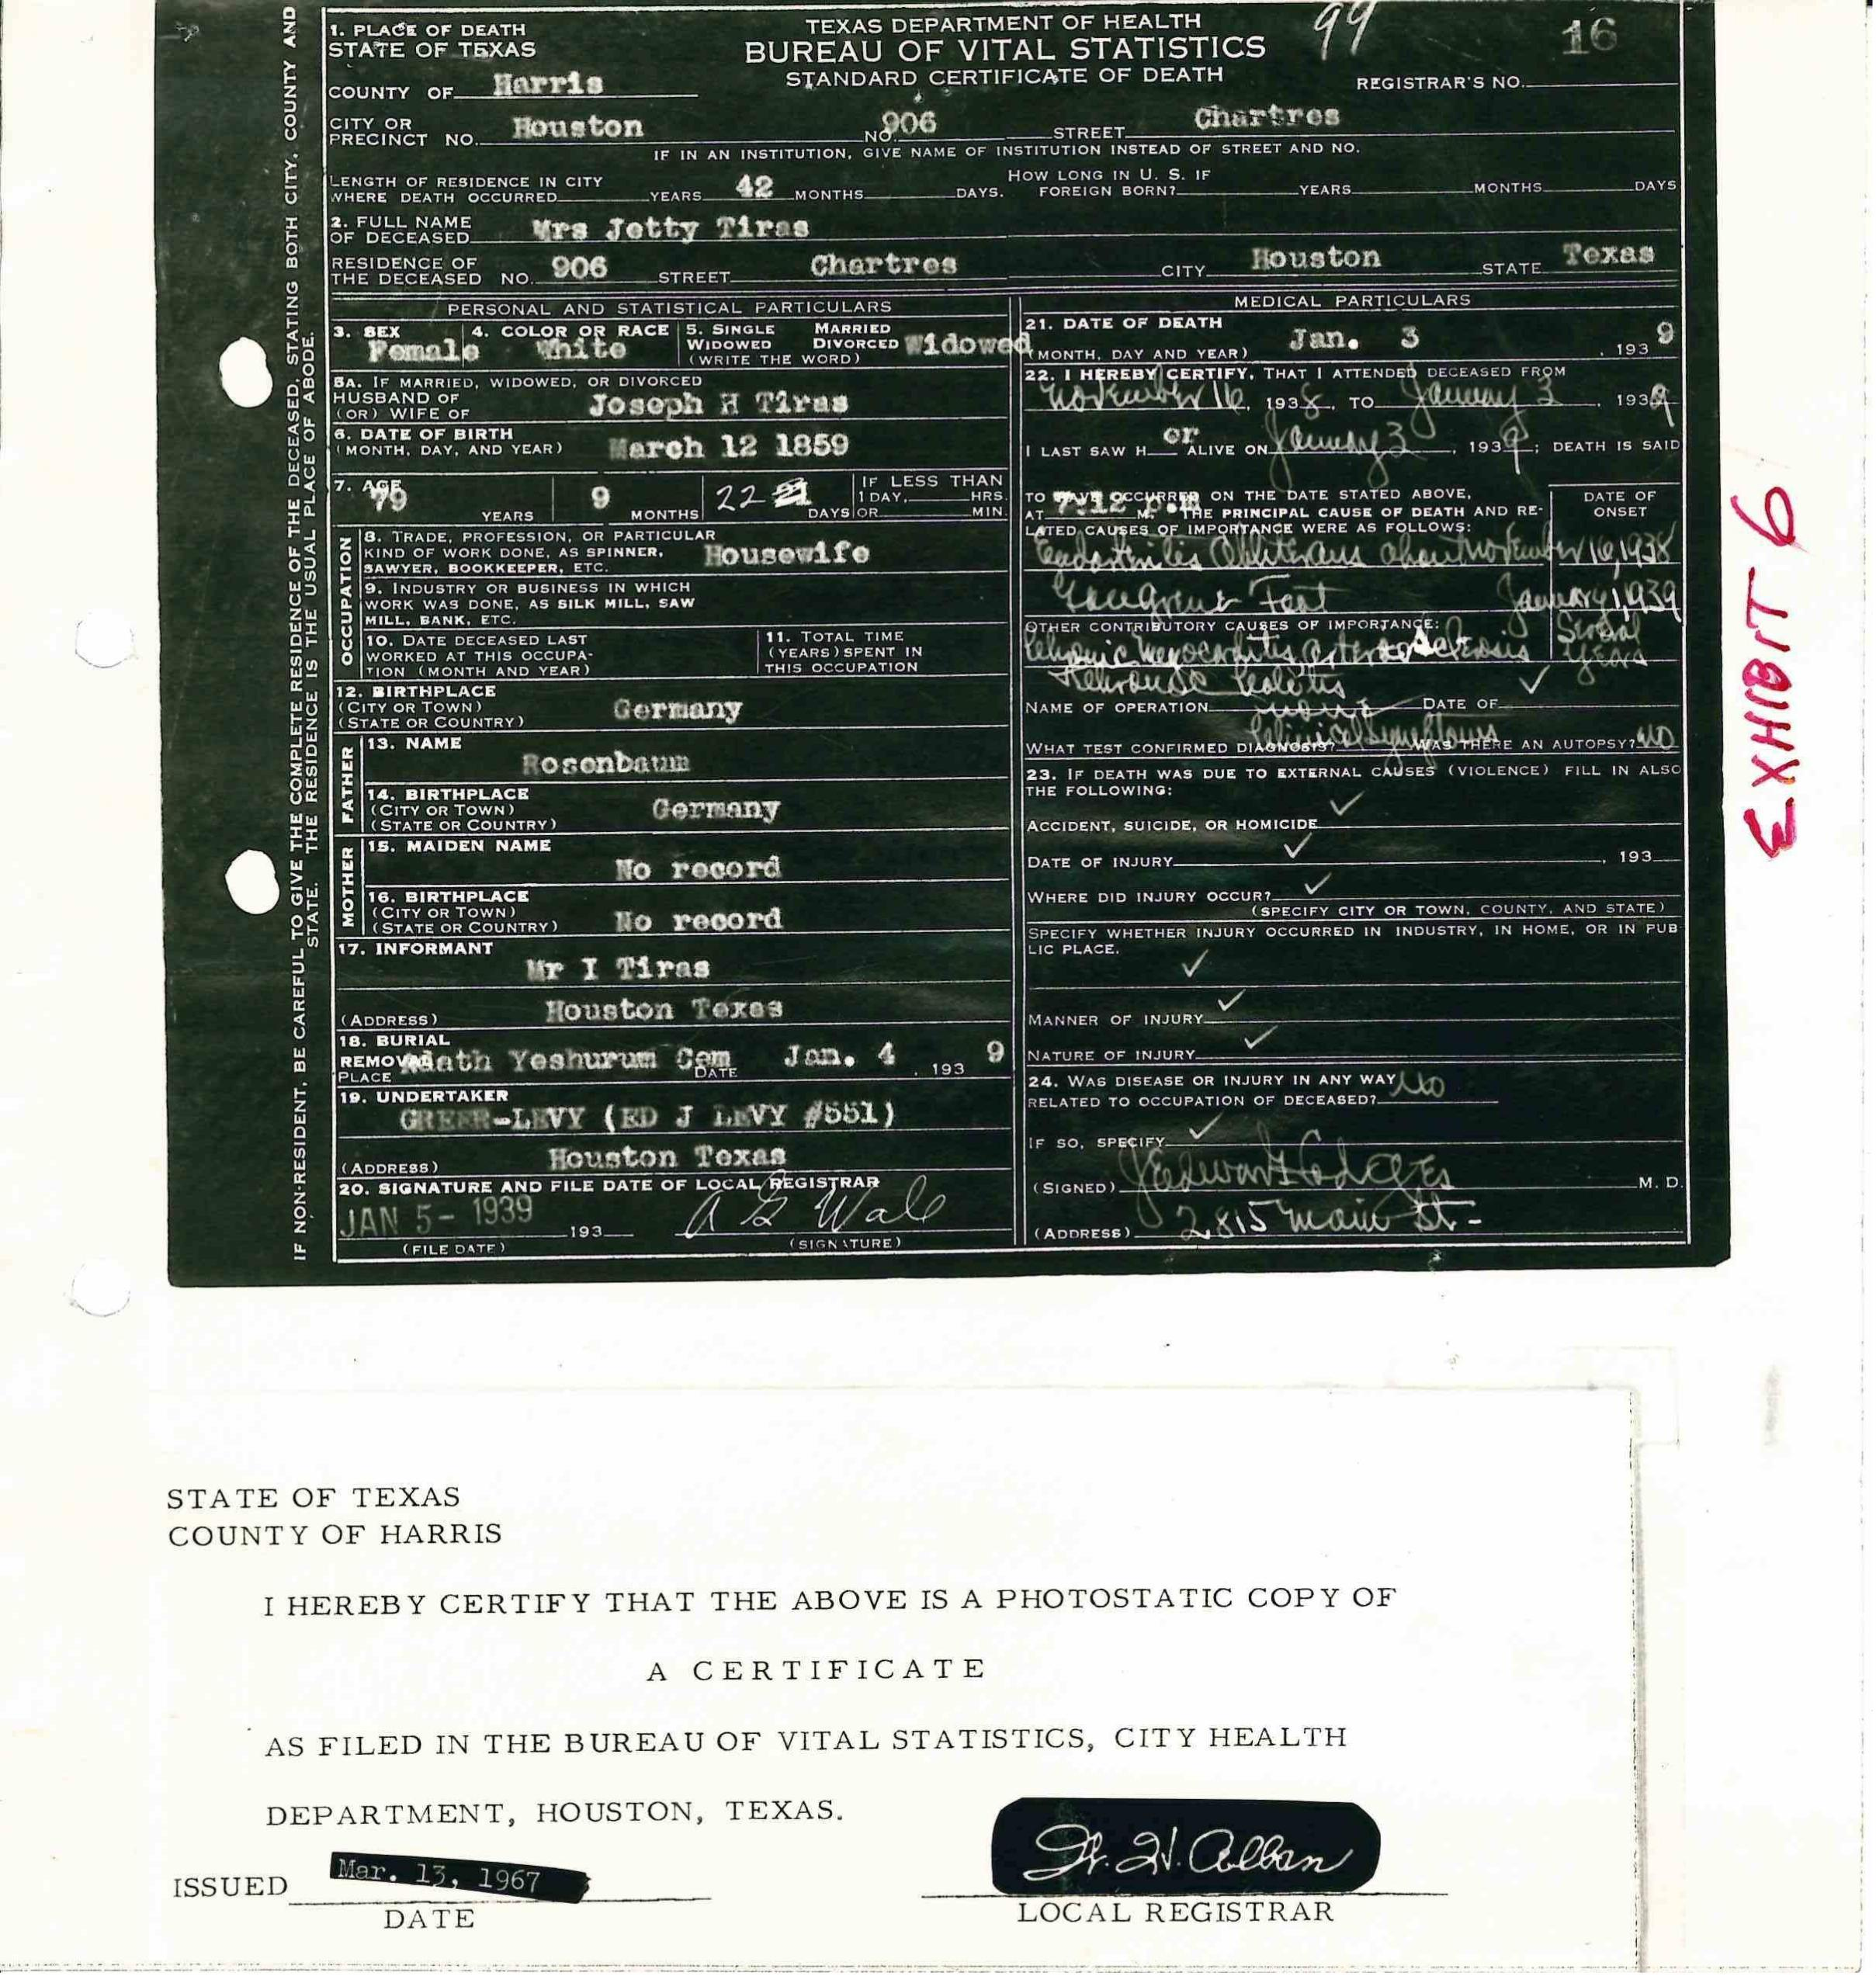 1. PLACE OF DEATH
STATE OF TEXAS
COUNTY OF Harris
TEXAS DEPARTMENT OF HEALTH
BUREAU OF VITAL STATISTICS
STANDARD CERTIFICATE OF DEATH
99
16
REGISTRAR'S NO.
CITY OR
PRECINCT NO. Houston NO. 906 STREET Chartres
IF IN AN INSTITUTION, GIVE NAME OF INSTITUTION INSTEAD OF STREET AND NO.
LENGTH OF RESIDENCE IN CITY
WHERE DEATH OCCURRED YEARS 42 MONTHS DAYS.
HOW LONG IN U. S. IF
FOREIGN BORN? YEARS MONTHS DAYS
2. FULL NAME
OF DECEASED Mrs Jetty Tiras
RESIDENCE OF
THE DECEASED NO. 906 STREET Chartres CITY Houston STATE Texas
PERSONAL AND STATISTICAL PARTICULARS
3. SEX Female
4. COLOR OR RACE White
5. SINGLE MARRIED
WIDOWED DIVORCED Widowed
(WRITE THE WORD)
5A. IF MARRIED, WIDOWED, OR DIVORCED
HUSBAND OF
(OR) WIFE OF Joseph H Tiras
6. DATE OF BIRTH
(MONTH, DAY, AND YEAR) March 12 1859
7. AGE 79 YEARS 9 MONTHS 22 DAYS
IF LESS THAN
1 DAY, HRS.
OR MIN.
OCCUPATION
8. TRADE, PROFESSION, OR PARTICULAR
KIND OF WORK DONE, AS SPINNER,
SAWYER, BOOKKEEPER, ETC. Housewife
9. INDUSTRY OR BUSINESS IN WHICH
WORK WAS DONE, AS SILK MILL, SAW
MILL, BANK, ETC.
10. DATE DECEASED LAST
WORKED AT THIS OCCUPA-
TION (MONTH AND YEAR)
11. TOTAL TIME
(YEARS) SPENT IN
THIS OCCUPATION
12. BIRTHPLACE
(CITY OR TOWN)
(STATE OR COUNTRY) Germany
FATHER
13. NAME
Rosenbaum
14. BIRTHPLACE
(CITY OR TOWN)
(STATE OR COUNTRY) Germany
MOTHER
15. MAIDEN NAME
No record
16. BIRTHPLACE
(CITY OR TOWN)
(STATE OR COUNTRY) No record
17. INFORMANT
Mr I Tiras
(ADDRESS) Houston Texas
18. BURIAL
REMOVAL Adath Yeshurum Cem DATE Jan. 4, 1939
PLACE
19. UNDERTAKER
GREER-LEVY (ED J LEVY #551)
(ADDRESS) Houston Texas
20. SIGNATURE AND FILE DATE OF LOCAL REGISTRAR
JAN 5 - 1939 193
(FILE DATE)
(SIGNATURE)
MEDICAL PARTICULARS
21. DATE OF DEATH
(MONTH, DAY AND YEAR) Jan. 3, 1939
22. I HEREBY CERTIFY, THAT I ATTENDED DECEASED FROM
November 16, 1938, TO January 3, 1939
I LAST SAW H er ALIVE ON January 3, 1939; DEATH IS SAID
TO HAVE OCCURRED ON THE DATE STATED ABOVE,
AT 7:12 p.m M. THE PRINCIPAL CAUSE OF DEATH AND RE-
LATED CAUSES OF IMPORTANCE WERE AS FOLLOWS:
DATE OF
ONSET
Endarteritis Obliterans about November 16, 1938
Gangrene Feet January 1, 1939
OTHER CONTRIBUTORY CAUSES OF IMPORTANCE:
Chronic Myocarditis, arteriosclerosis Several years
NAME OF OPERATION none DATE OF
WHAT TEST CONFIRMED DIAGNOSIS? Clinical Symptoms WAS THERE AN AUTOPSY? No
23. IF DEATH WAS DUE TO EXTERNAL CAUSES (VIOLENCE) FILL IN ALSO
THE FOLLOWING:
ACCIDENT, SUICIDE, OR HOMICIDE
DATE OF INJURY , 193
WHERE DID INJURY OCCUR?
(SPECIFY CITY OR TOWN, COUNTY, AND STATE)
SPECIFY WHETHER INJURY OCCURRED IN INDUSTRY, IN HOME, OR IN PUB
LIC PLACE.
MANNER OF INJURY
NATURE OF INJURY
24. WAS DISEASE OR INJURY IN ANY WAY
RELATED TO OCCUPATION OF DECEASED? No
IF SO, SPECIFY
(SIGNED) M. D.
(ADDRESS) 2815 Main St-
IF NON-RESIDENT, BE CAREFUL TO GIVE THE COMPLETE RESIDENCE OF THE DECEASED, STATING BOTH CITY, COUNTY AND
STATE. THE RESIDENCE IS THE USUAL PLACE OF ABODE.
EXHIBIT 6
STATE OF TEXAS
COUNTY OF HARRIS
I HEREBY CERTIFY THAT THE ABOVE IS A PHOTOSTATIC COPY OF
A CERTIFICATE
AS FILED IN THE BUREAU OF VITAL STATISTICS, CITY HEALTH
DEPARTMENT, HOUSTON, TEXAS.
ISSUED Mar. 13, 1967
DATE
LOCAL REGISTRAR